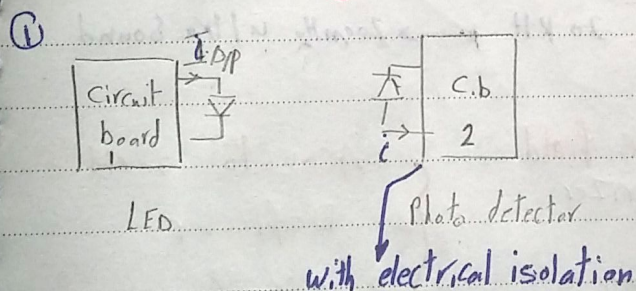 1
I o/p
Circuit
board
1
C.b
2
i
LED
Photo detector
with electrical isolation